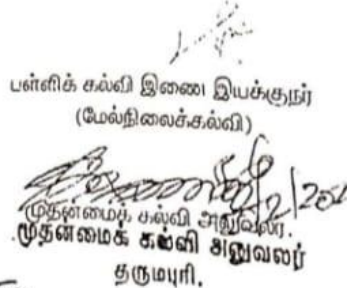 பள்ளிக் கல்வி இணை இயக்குநர்
(மேல்நிலைக்கல்வி)
முதன்மைக் கல்வி அலுவலர்.
முதன்மைக் கல்வி அலுவலர்
தருமபுரி.